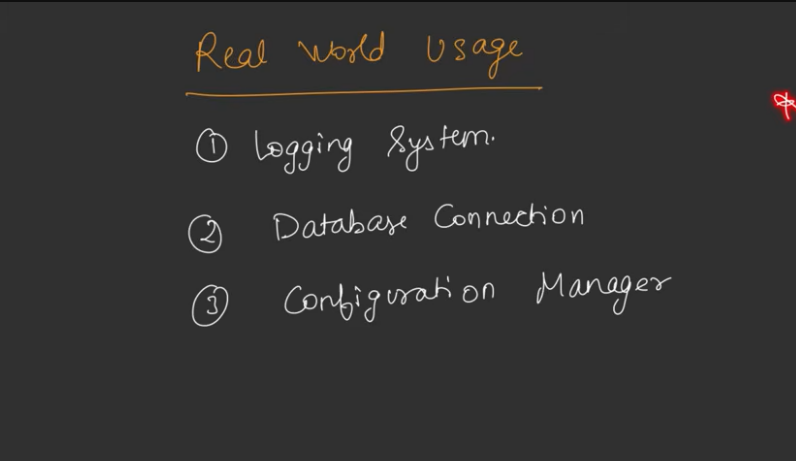 Real World Usage
① Logging System.
② Database Connection
③ Configuration Manager